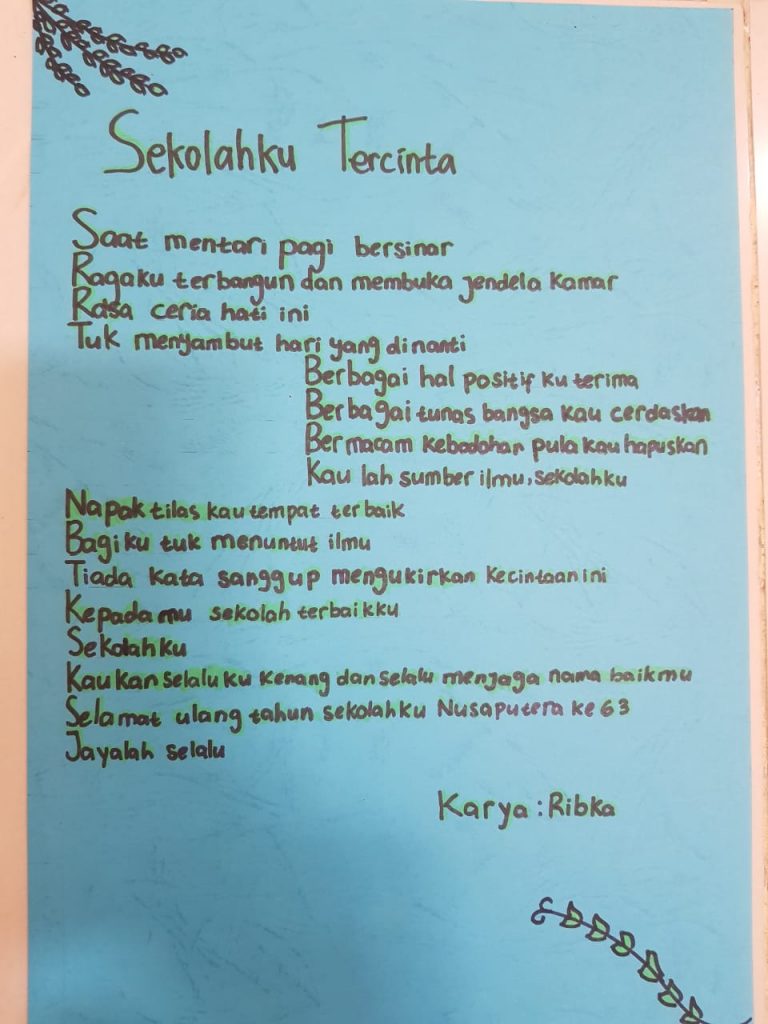 Sekolahku Tercinta
Saat mentari pagi bersinar
Ragaku terbangun dan membuka jendela kamar
Rasa ceria hati ini
Tuk menyambut hari yang dinanti
Berbagai hal positif ku terima
Berbagai tunas bangsa kau cerdaskan
Bermacam kebodohan pula kau hapuskan
Kau lah sumber ilmu, sekolahku
Napak tilas kau tempat terbaik
Bagiku tuk menuntut ilmu
Tiada kata sanggup mengukirkan kecintaan ini
Kepadamu sekolah terbaikku
Sekolahku
Kau kan selalu ku kenang dan selalu menjaga nama baikmu
Selamat ulang tahun sekolahku Nusaputera ke 63
Jayalah selalu
Karya : Ribka